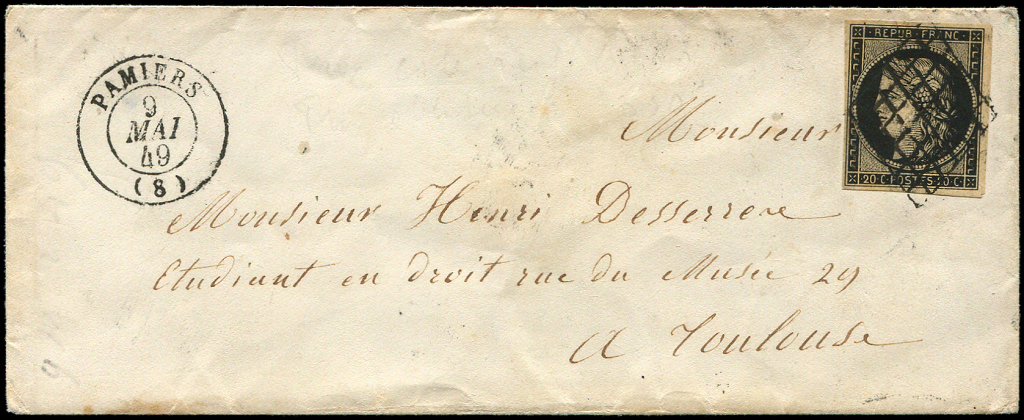 PAMIERS
9
MAI
49
(8)
REPUB. FRANC.
20 C. POSTES 20 C.
Monsieur
Monsieur Henri Desserrere
Etudiant en droit rue du Musée 29
a Toulouse